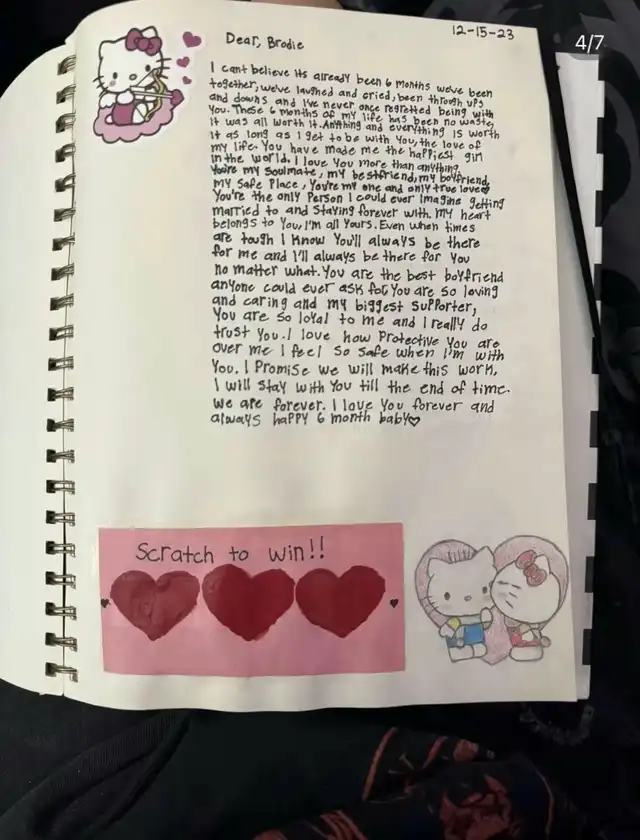 12-15-23
4/7
Dear, Brodie
I cant believe its already been 6 months we've been
together, we've laughed and cried, been through ups
and downs and I've never once regretted being with
you. These 6 months of my life has been no waste,
it was all worth it. Anything and everything is worth
it as long as I get to be with you, the love of
my life. You have made me the happiest girl
in the world. I love you more than anything
you're my soulmate, my bestfriend, my boyfriend,
my safe place, you're my one and only true love
You're the only person I could ever imagine getting
married to and staying forever with. my heart
belongs to you, I'm all yours. Even when times
are tough I know you'll always be there
for me and I'll always be there for you
no matter what. You are the best boyfriend
anyone could ever ask for. You are so loving
and caring and my biggest supporter,
you are so loyal to me and I really do
trust you. I love how protective you are
over me I feel so safe when I'm with
you. I promise we will make this work,
I will stay with you till the end of time.
we are forever. I love you forever and
always happy 6 month baby♡
Scratch to win!!